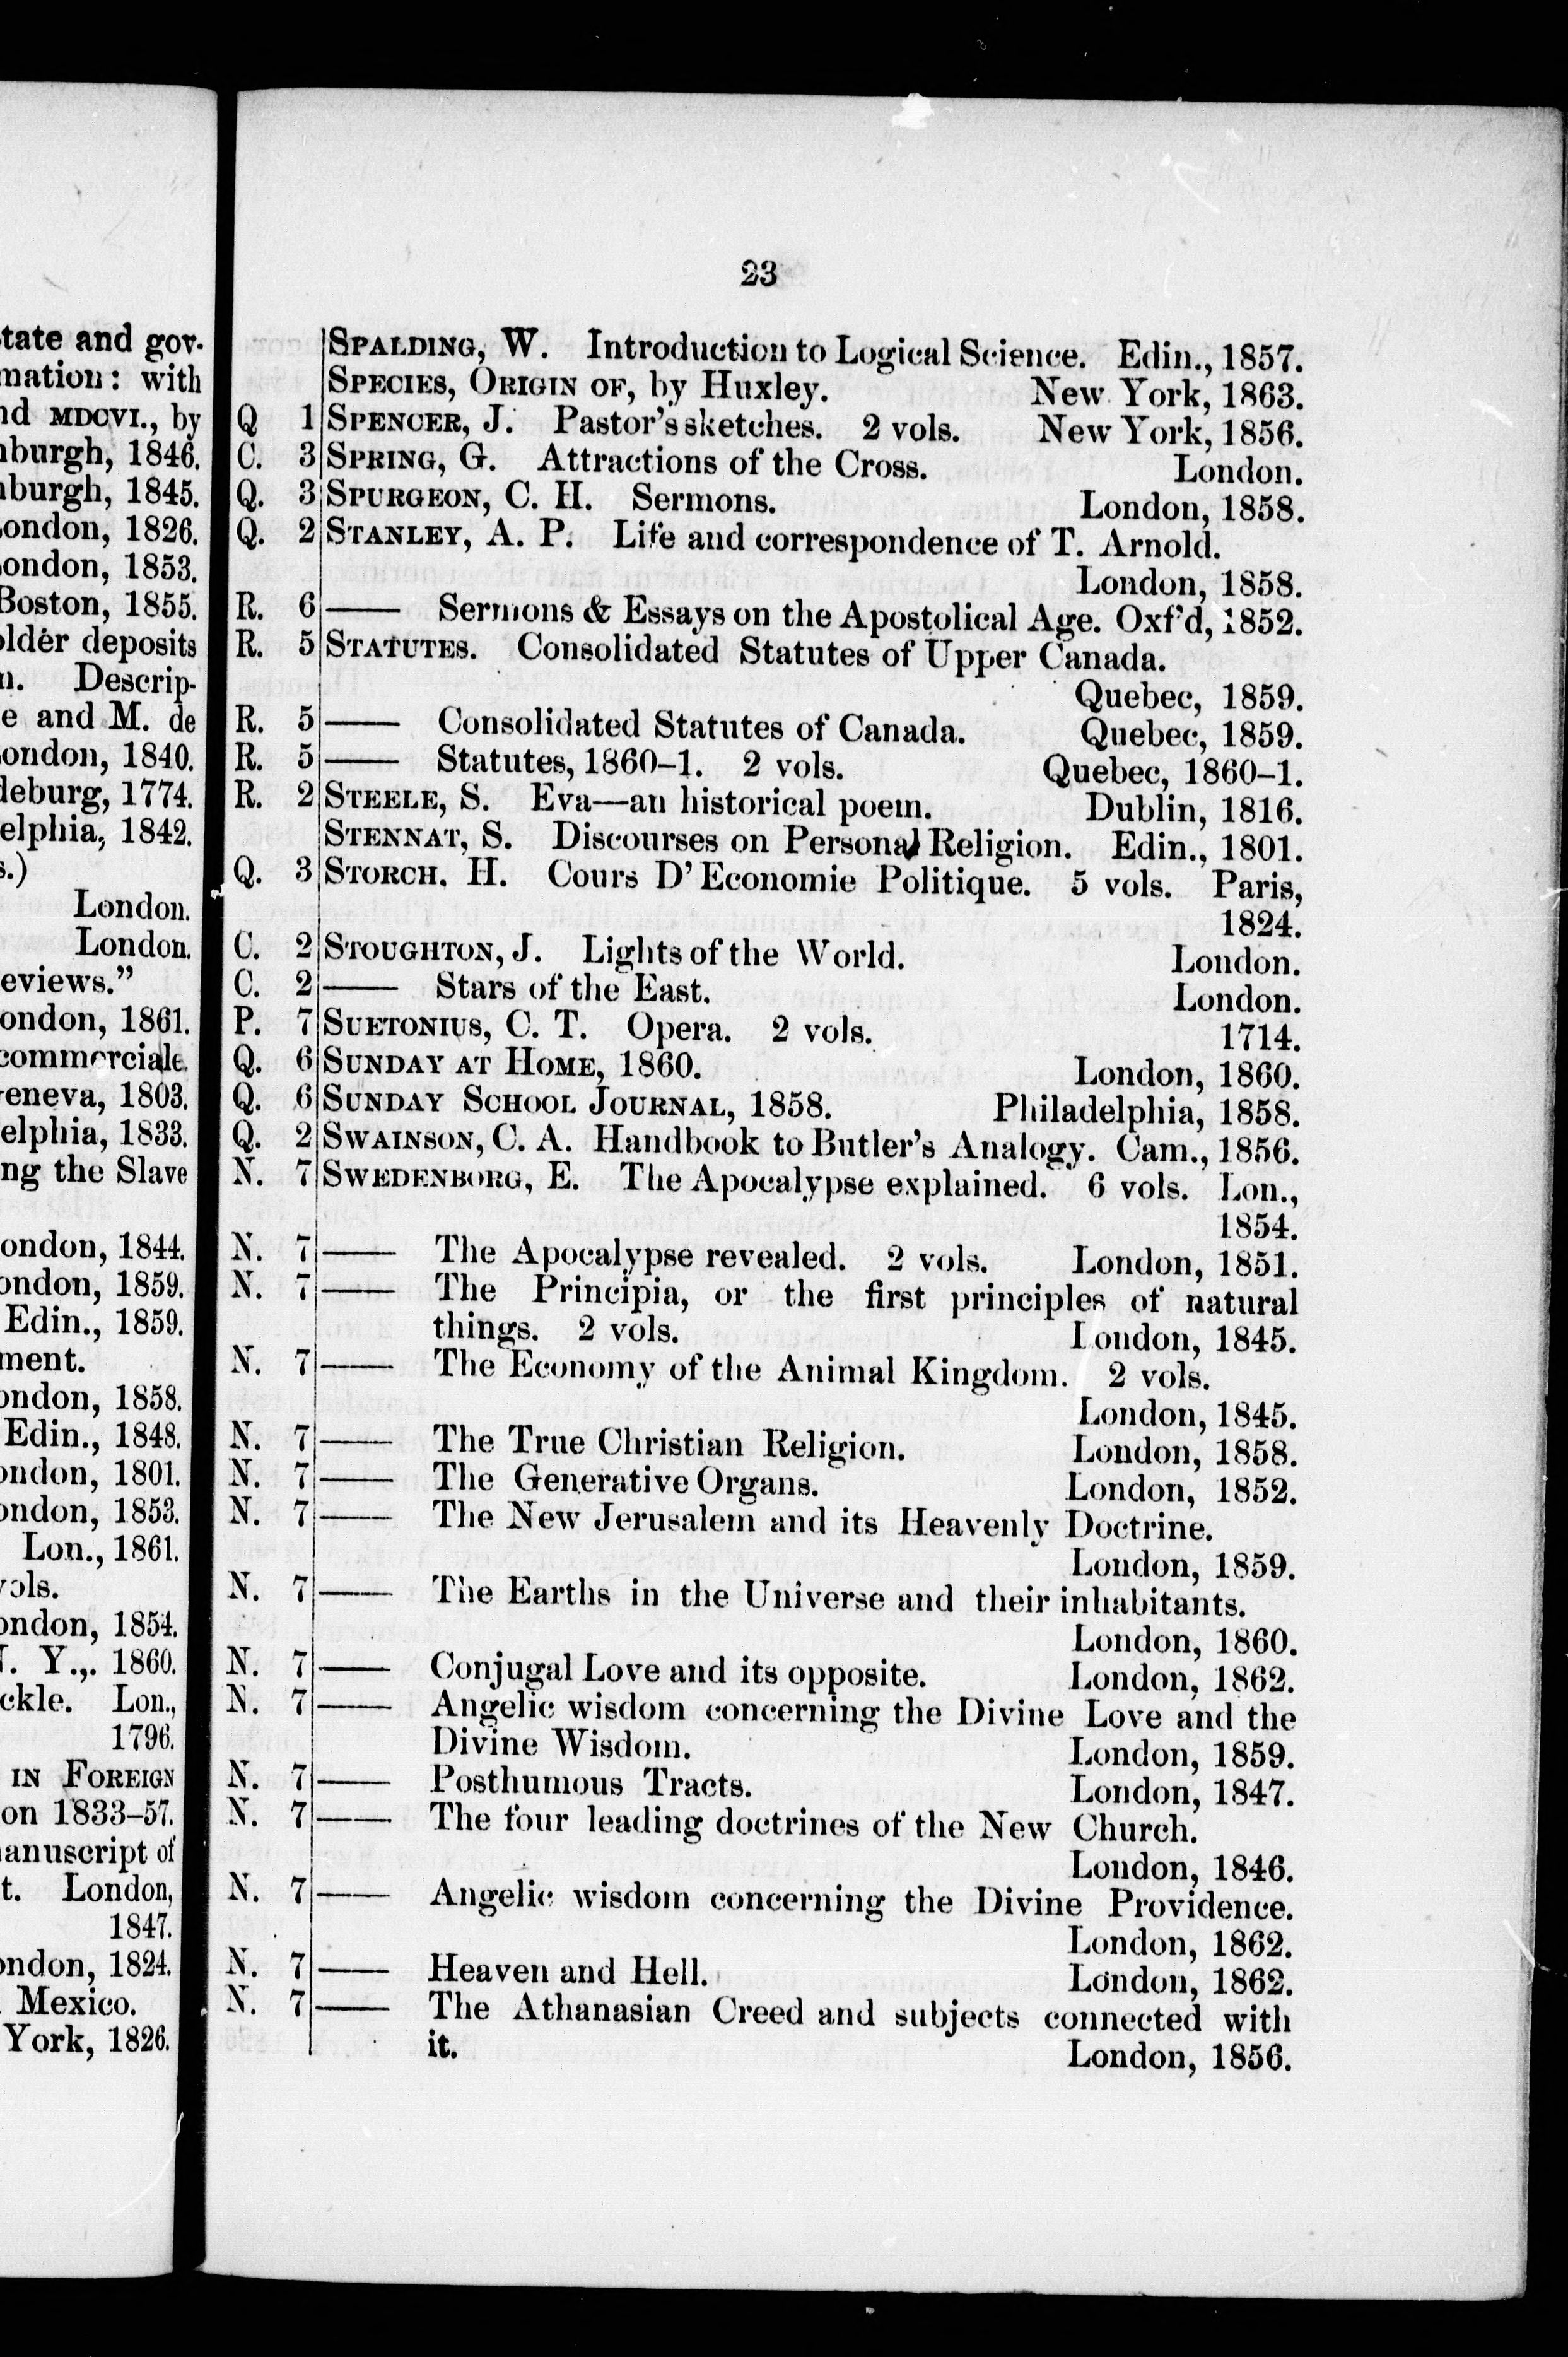 tate and gov-
mation: with
nd MDCVI., by
nburgh, 1846.
nburgh, 1845.
ondon, 1826.
ondon, 1853.
Boston, 1855.
older deposits
n. Descrip-
e and M. de
ondon, 1840.
deburg, 1774.
elphia, 1842.
s.)
London.
London.
eviews.”
ondon, 1861.
commerciale.
eneva, 1803.
elphia, 1833.
ng the Slave
ondon, 1844.
ondon, 1859.
Edin., 1859.
ment.
ondon, 1858.
Edin., 1848.
ondon, 1801.
ondon, 1853.
Lon., 1861.
vols.
ondon, 1854.
Y.,. 1860.
ckle. Lon.,
1796.
IN FOREIGN
on 1833–57.
anuscript of
t. London,
1847.
ondon, 1824.
Mexico.
York, 1826.
23
SPALDING, W. Introduction to Logical Science. Edin., 1857.
SPECIES, ORIGIN OF, by Huxley. New York, 1863.
Q 1 SPENCER, J. Pastor's sketches. 2 vols. New York, 1856.
C. 3 SPRING, G. Attractions of the Cross. London.
Q. 3 SPURGEON, C. H. Sermons. London, 1858.
Q. 2 STANLEY, A. P. Life and correspondence of T. Arnold.
London, 1858.
R. 6 —— Sermons & Essays on the Apostolical Age. Oxf'd, 1852.
R. 5 STATUTES. Consolidated Statutes of Upper Canada.
Quebec, 1859.
R. 5 —— Consolidated Statutes of Canada. Quebec, 1859.
R. 5 —— Statutes, 1860–1. 2 vols. Quebec, 1860–1.
R. 2 STEELE, S. Eva—an historical poem. Dublin, 1816.
STENNAT, S. Discourses on Personal Religion. Edin., 1801.
Q. 3 STORCH. H. Cours D'Economie Politique. 5 vols. Paris,
1824.
C. 2 STOUGHTON, J. Lights of the World. London.
C. 2 —— Stars of the East. London.
P. 7 SUETONIUS, C. T. Opera. 2 vols. 1714.
Q. 6 SUNDAY AT HOME, 1860. London, 1860.
Q. 6 SUNDAY SCHOOL JOURNAL, 1858. Philadelphia, 1858.
Q. 2 SWAINSON, C. A. Handbook to Butler's Analogy. Cam., 1856.
N. 7 SWEDENBORG, E. The Apocalypse explained. 6 vols. Lon.,
1854.
N. 7 —— The Apocalypse revealed. 2 vols. London, 1851.
N. 7 —— The Principia, or the first principles of natural
things. 2 vols. London, 1845.
N. 7 —— The Economy of the Animal Kingdom. 2 vols.
London, 1845.
N. 7 —— The True Christian Religion. London, 1858.
N. 7 —— The Generative Organs. London, 1852.
N. 7 —— The New Jerusalem and its Heavenly Doctrine.
London, 1859.
N. 7 —— The Earths in the Universe and their inhabitants.
London, 1860.
N. 7 —— Conjugal Love and its opposite. London, 1862.
N. 7 —— Angelic wisdom concerning the Divine Love and the
Divine Wisdom. London, 1859.
N. 7 —— Posthumous Tracts. London, 1847.
N. 7 —— The four leading doctrines of the New Church.
London, 1846.
N. 7 —— Angelic wisdom concerning the Divine Providence.
London, 1862.
N. 7 —— Heaven and Hell. London, 1862.
N. 7 —— The Athanasian Creed and subjects connected with
it. London, 1856.